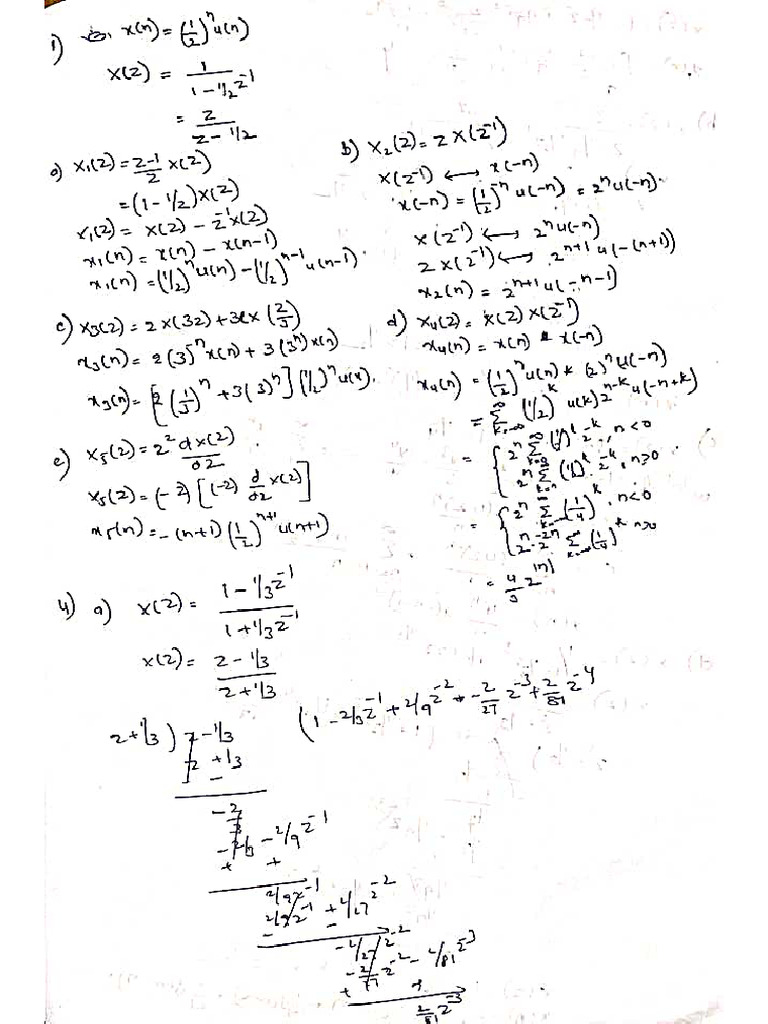 1) x(n) = (1/2)^n u(n)
x(z) = 1 / (1 - 1/2 z^-1)
= z / (z - 1/2)
a) x1(z) = z-1/z x(z)
= (1 - 1/z) x(z)
x1(z) = x(z) - z^-1 x(z)
x1(n) = x(n) - x(n-1)
x1(n) = (1/2)^n u(n) - (1/2)^n-1 u(n-1)
b) x2(z) = z x(z^-1)
x(z^-1) ⟷ x(-n)
x(-n) = (1/2)^-n u(-n) = 2^n u(-n)
x(z^-1) ⟷ 2^n u(-n)
z x(z^-1) ⟷ 2^n+1 u(-(n+1))
x2(n) = 2^n+1 u(-n-1)
c) x3(z) = 2x(3z) + 3x(z/3)
x3(n) = 2(3)^-n x(n) + 3(3^n) x(n)
x3(n) = [2(1/3)^n + 3(3)^n] (1/2)^n u(n).
d) x4(z) = x(z) x(z^-1)
x4(n) = x(n) * x(-n)
x4(n) = (1/2)^n u(n) * (2)^n u(-n)
= Σ (1/2)^k u(k) 2^n-k u(-n+k)
= { 2^n Σ (1/2)^k 2^-k, n<0
2^n Σ (1/2)^k 2^-k, n≥0
= { 2^n Σ (1/4)^k, n<0
2^n 2^-2n Σ (1/4)^k n≥0
= 4/3 2^|n|
e) x5(z) = z^2 dx(z)/dz
x5(z) = (-z) [(-z) d/dz x(z)]
x5(n) = -(n+1) (1/2)^n+1 u(n+1)
4) a) x(z) = (1 - 1/3 z^-1) / (1 + 1/3 z^-1)
x(z) = (z - 1/3) / (z + 1/3)
z + 1/3 ) z - 1/3 ( 1 - 2/3 z^-1 + 2/9 z^-2 + -2/27 z^-3 + 2/81 z^-4
z + 1/3
-
-2/3
-2/3 - 2/9 z^-1
+ +
2/9 z^-1
2/9 z^-1 + 2/27 z^-2
- -
-2/27 z^-2
-2/27 z^-2 - 2/81 z^-3
+
2/81 z^-3